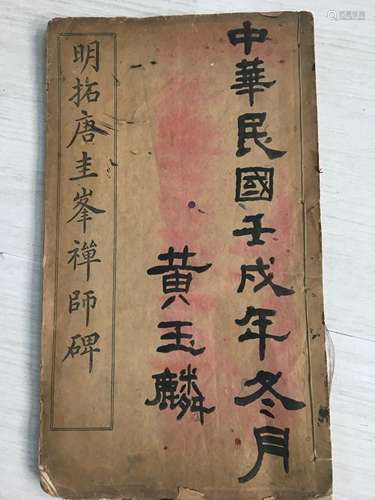 中華民國壬戌年冬月
黃玉麟
明拓唐圭峯禪師碑